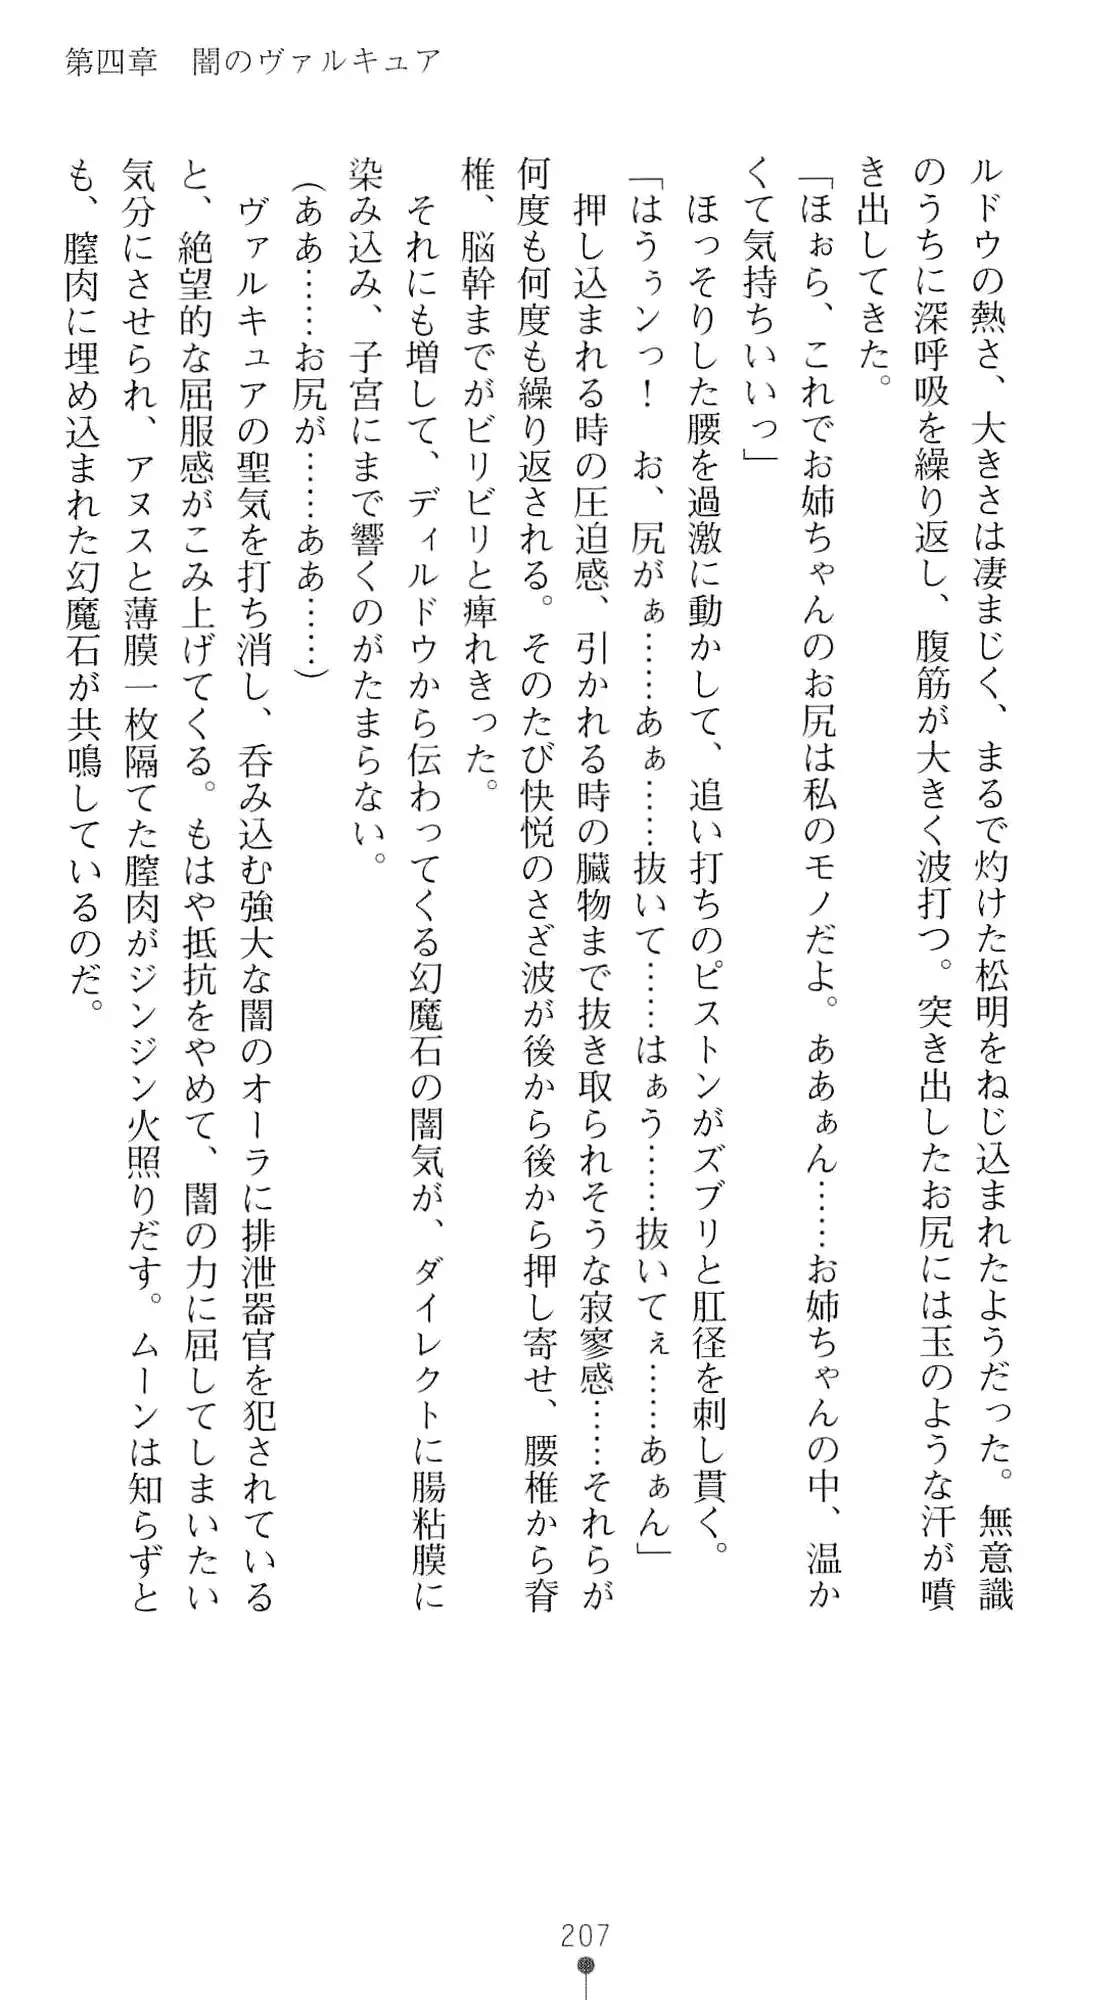 第四章　闇のヴァルキュア
ルドウの熱さ、大きさは凄まじく、まるで灼けた松明をねじ込まれたようだった。無意識
のうちに深呼吸を繰り返し、腹筋が大きく波打つ。突き出したお尻には玉のような汗が噴
き出してきた。
「ほぉら、これでお姉ちゃんのお尻は私のモノだよ。ああぁん……お姉ちゃんの中、温か
くて気持ちいいっ」
ほっそりした腰を過激に動かして、追い打ちのピストンがズブリと肛径を刺し貫く。
「はうぅンっ！　お、尻がぁ……あぁ……抜いて……はぁう……抜いてぇ……あぁん」
押し込まれる時の圧迫感、引かれる時の臓物まで抜き取られそうな寂寥感……それらが
何度も何度も繰り返される。そのたび快悦のさざ波が後から後から押し寄せ、腰椎から脊
椎、脳幹までがビリビリと痺れきった。
それにも増して、ディルドウから伝わってくる幻魔石の闇気が、ダイレクトに腸粘膜に
染み込み、子宮にまで響くのがたまらない。
（ああ……お尻が……ああ……）
ヴァルキュアの聖気を打ち消し、呑み込む強大な闇のオーラに排泄器官を犯されている
と、絶望的な屈服感がこみ上げてくる。もはや抵抗をやめて、闇の力に屈してしまいたい
気分にさせられ、アヌスと薄膜一枚隔てた膣肉がジンジン火照りだす。ムーンは知らずと
も、膣肉に埋め込まれた幻魔石が共鳴しているのだ。
207